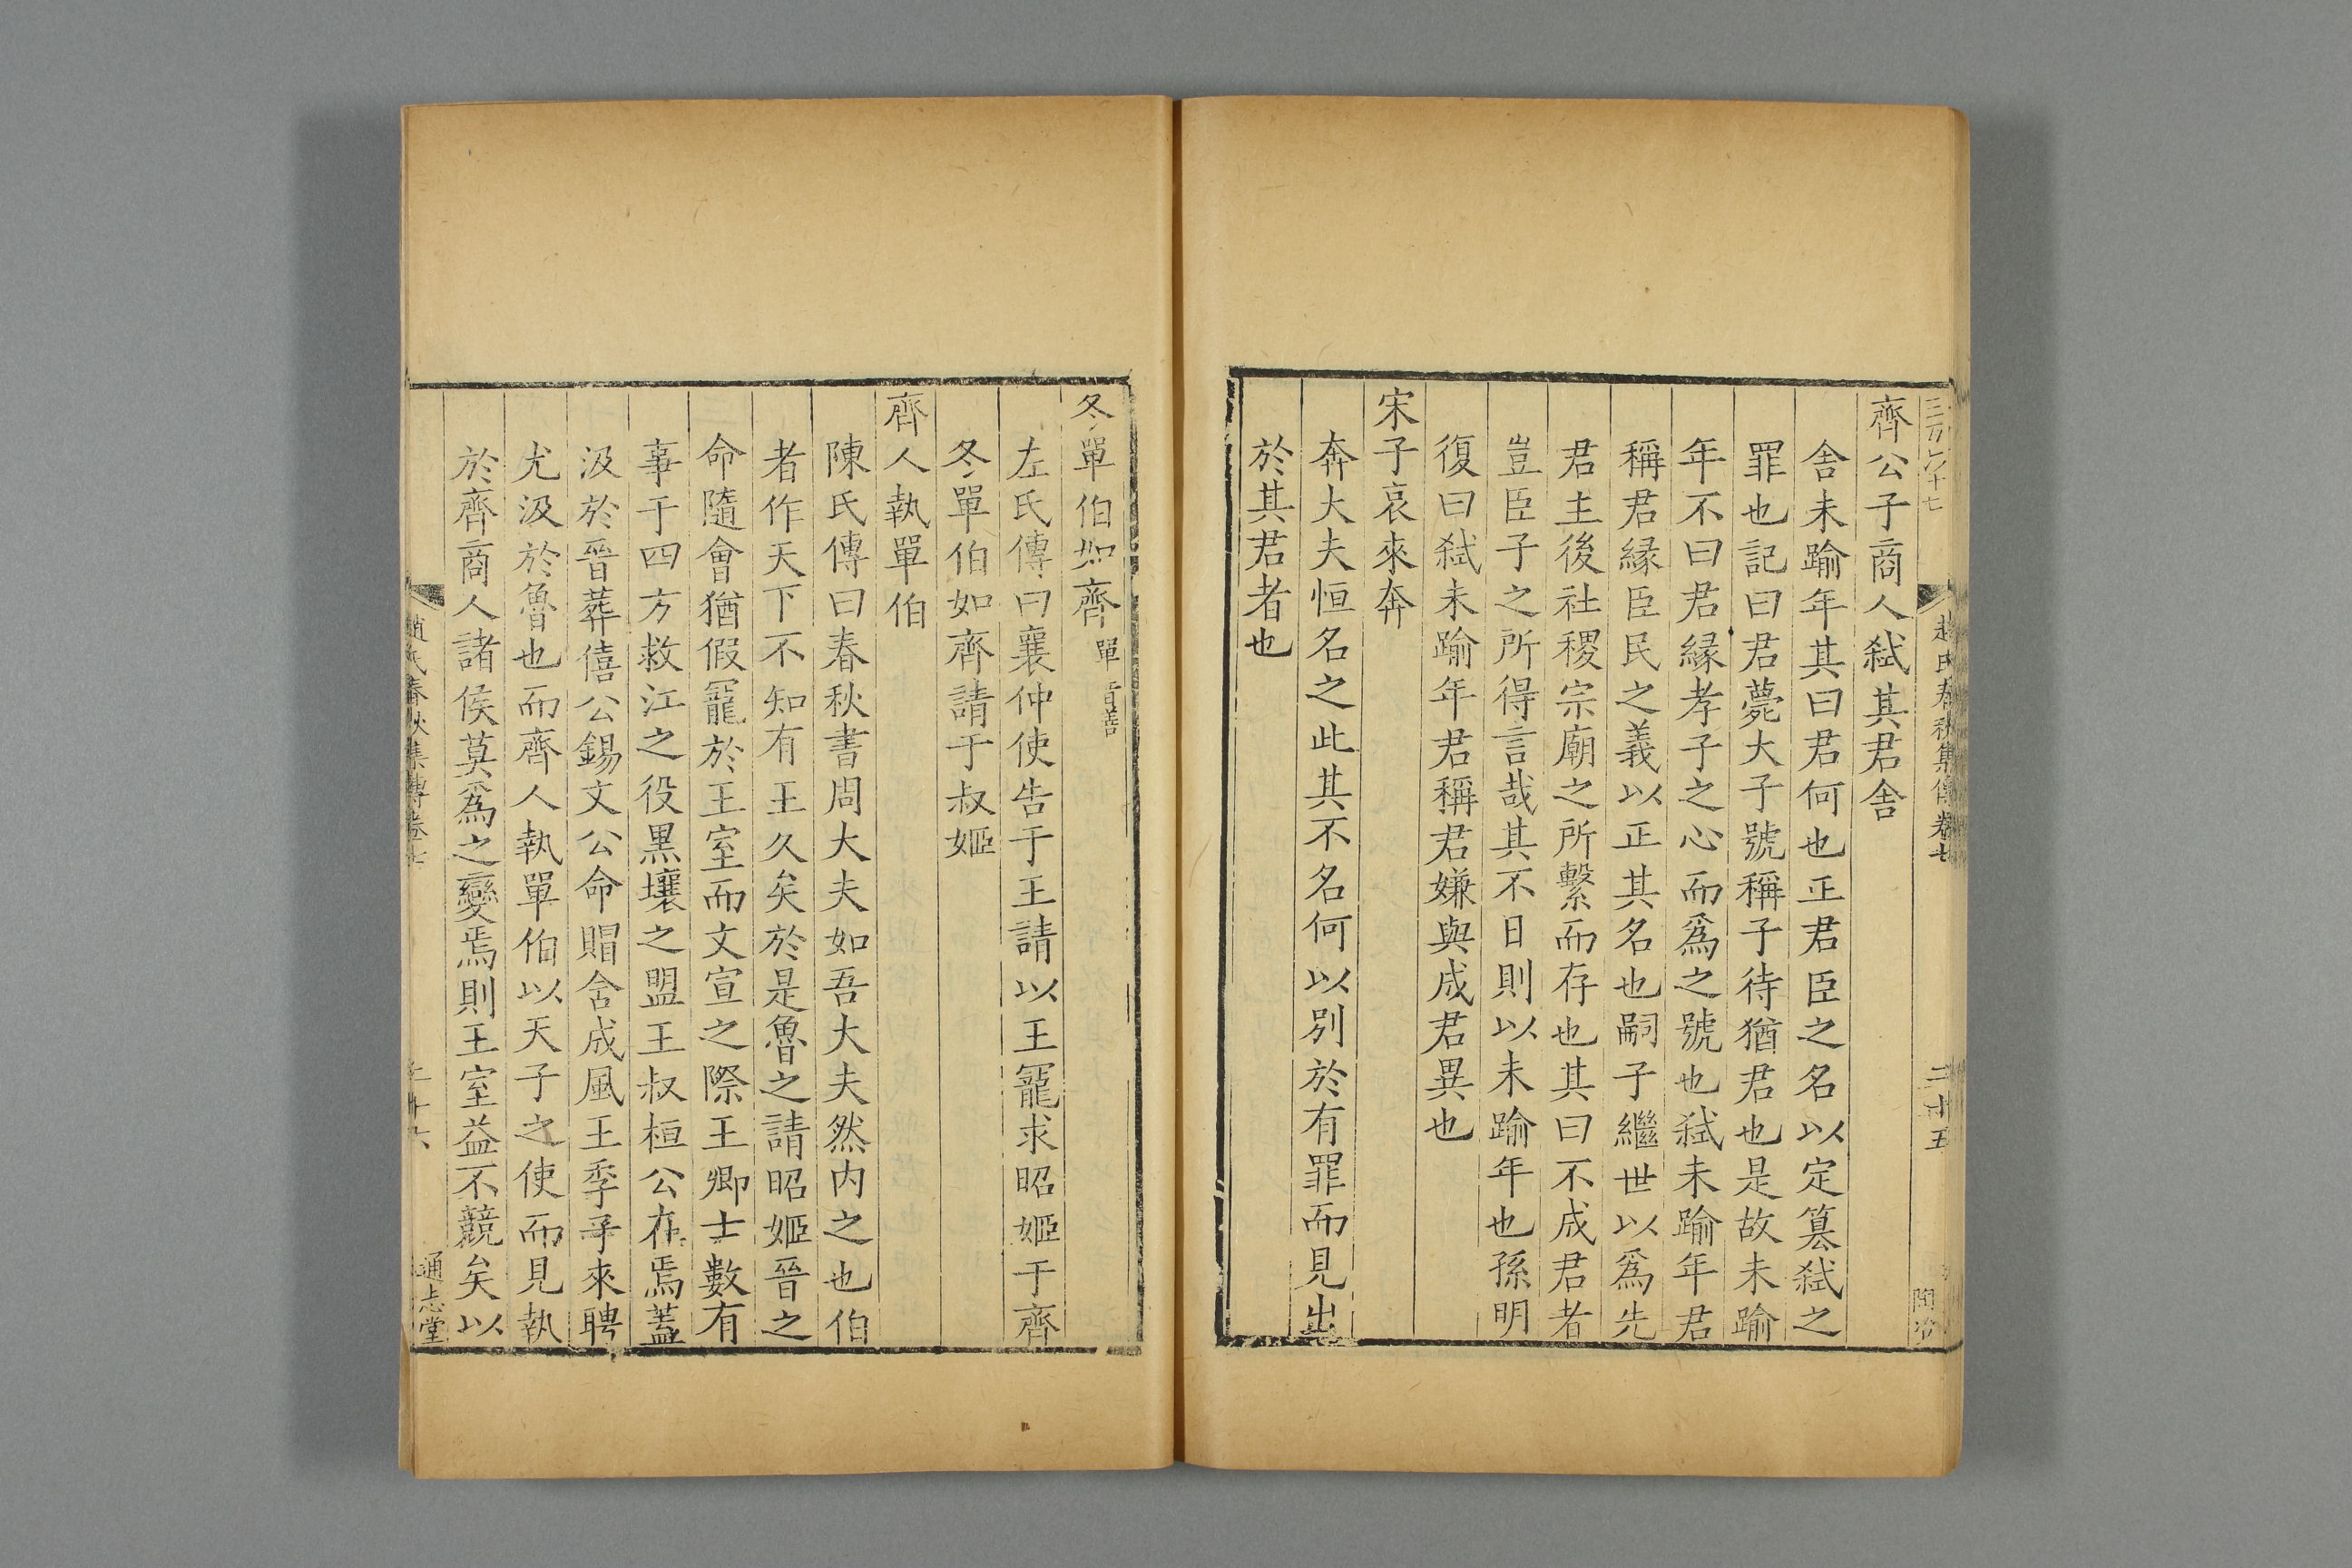 齊公子商人弑其君舎
舎未踰年其曰君何也正君臣之名以定簒弑之
罪也記曰君薨大子號稱子待猶君也是故未踰
年不曰君縁孝子之心而爲之號也弑未踰年君
稱君縁臣民之義以正其名也嗣子繼世以爲先
君主後社稷宗廟之所繫而存也其曰不成君者
豈臣子之所得言哉其不日則以未踰年也孫明
復曰弑未踰年君稱君嫌與成君異也
宋子哀來奔
奔大夫恒名之此其不名何以别於有罪而見出
於其君者也
趙氏春秋集傳卷七
二十五
冬單伯如齊單音善
左氏傳曰襄仲使告于王請以王寵求昭姬于齊
冬單伯如齊請于叔姬
齊人執單伯
陳氏傳曰春秋書周大夫如吾大夫然内之也伯
者作天下不知有王久矣於是魯之請昭姬晉之
命隨會猶假寵於王室而文宣之際王卿士數有
事于四方救江之役黒壤之盟王叔桓公在焉蓋
汲於晉葬僖公錫文公命賵含成風王季子來聘
尤汲於魯也而齊人執單伯以天子之使而見執
於齊商人諸侯莫爲之變焉則王室益不競矣以
趙氏春秋集傳卷七
二十六
通志堂